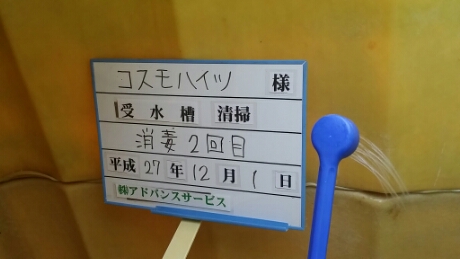 コスモハイツ 様
受水槽 清掃
消毒2回目
平成27年12月1日
㈱アドバンスサービス